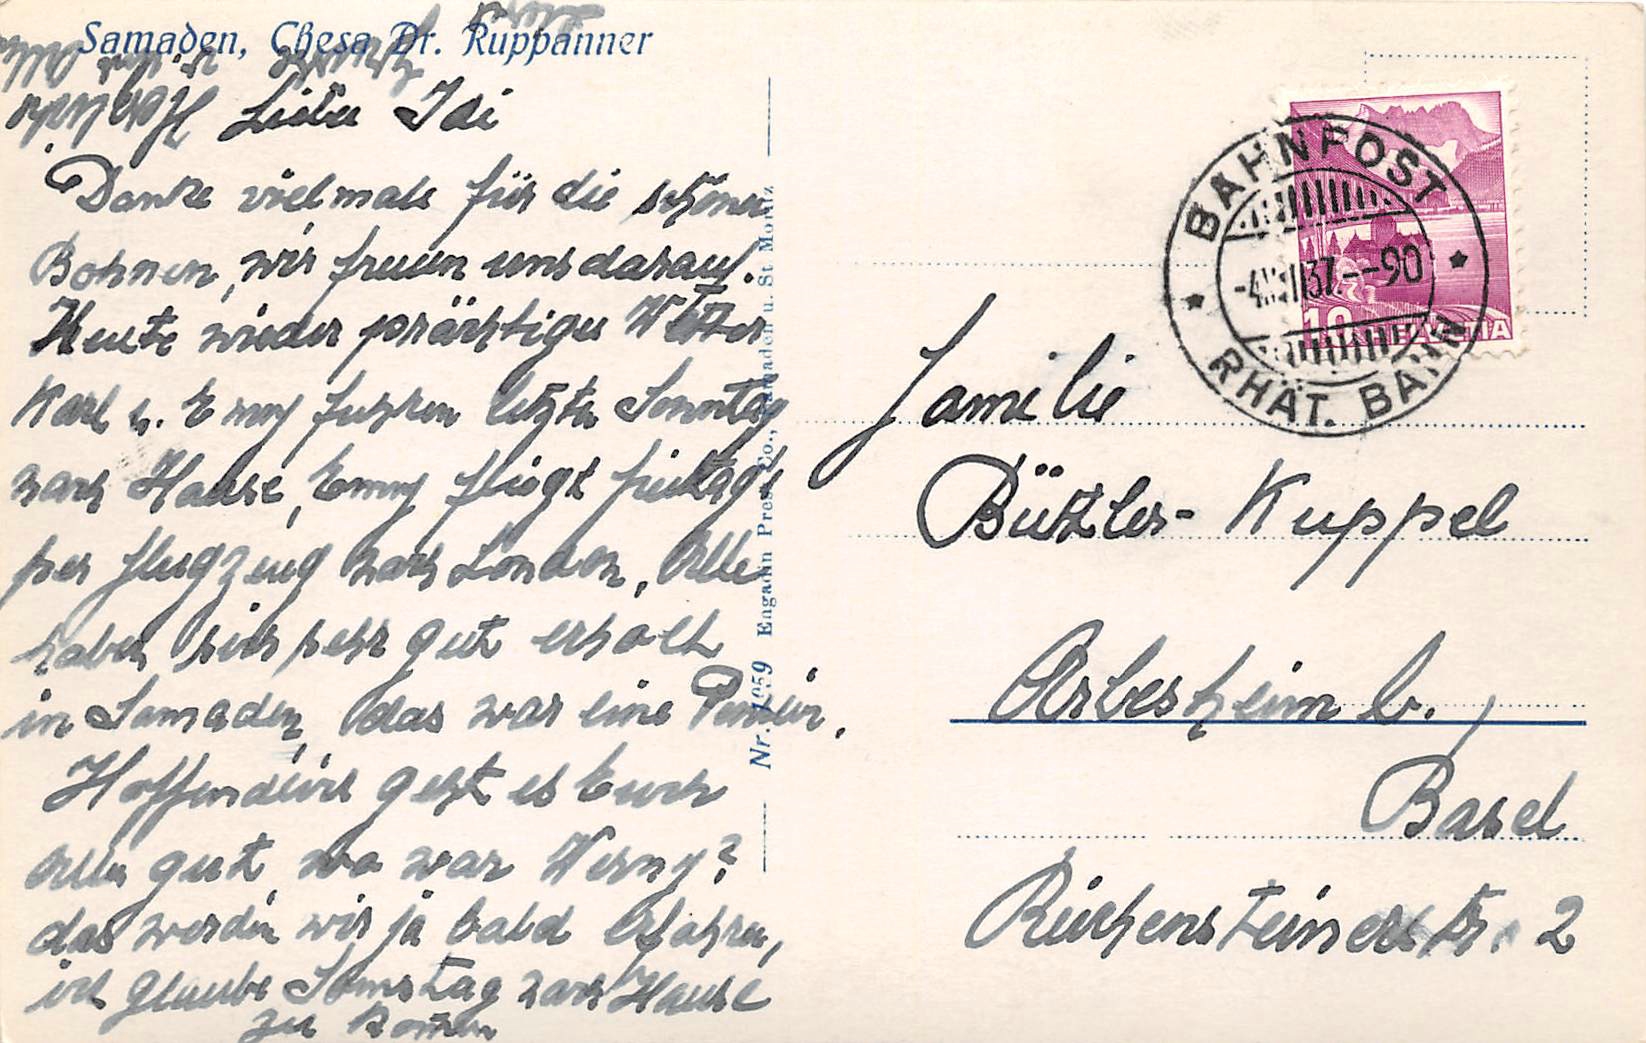 Samaden, Chesa Dr. Ruppanner
Liebe Idi
Danke vielmals für die schönen
Bohnen, wir freuen uns darauf.
Heute wieder prächtiges Wetter
Karl u. Emmy fuhren letzten Sonntag
nach Hause, Emmy fliegt freitags
per flugzeug nach London, Alle
haben sich sehr gut erholt
in Samaden, das war eine
Hoffendlich geht es Euch
Allen gut, wo war Werny?
das werden wir ja bald Erfahren,
ich glaube Samstag nach Hause
zu komen
Nr. 1059 Engadin Press Co., Samaden u. St. Moritz
BAHNPOST
-4.VIII.37.--90
RHÄT. BAHN
10 HELVETIA
Familie
Bützler-Kuppel
Arlesheim b.
Basel
Reichensteinerstr. 2